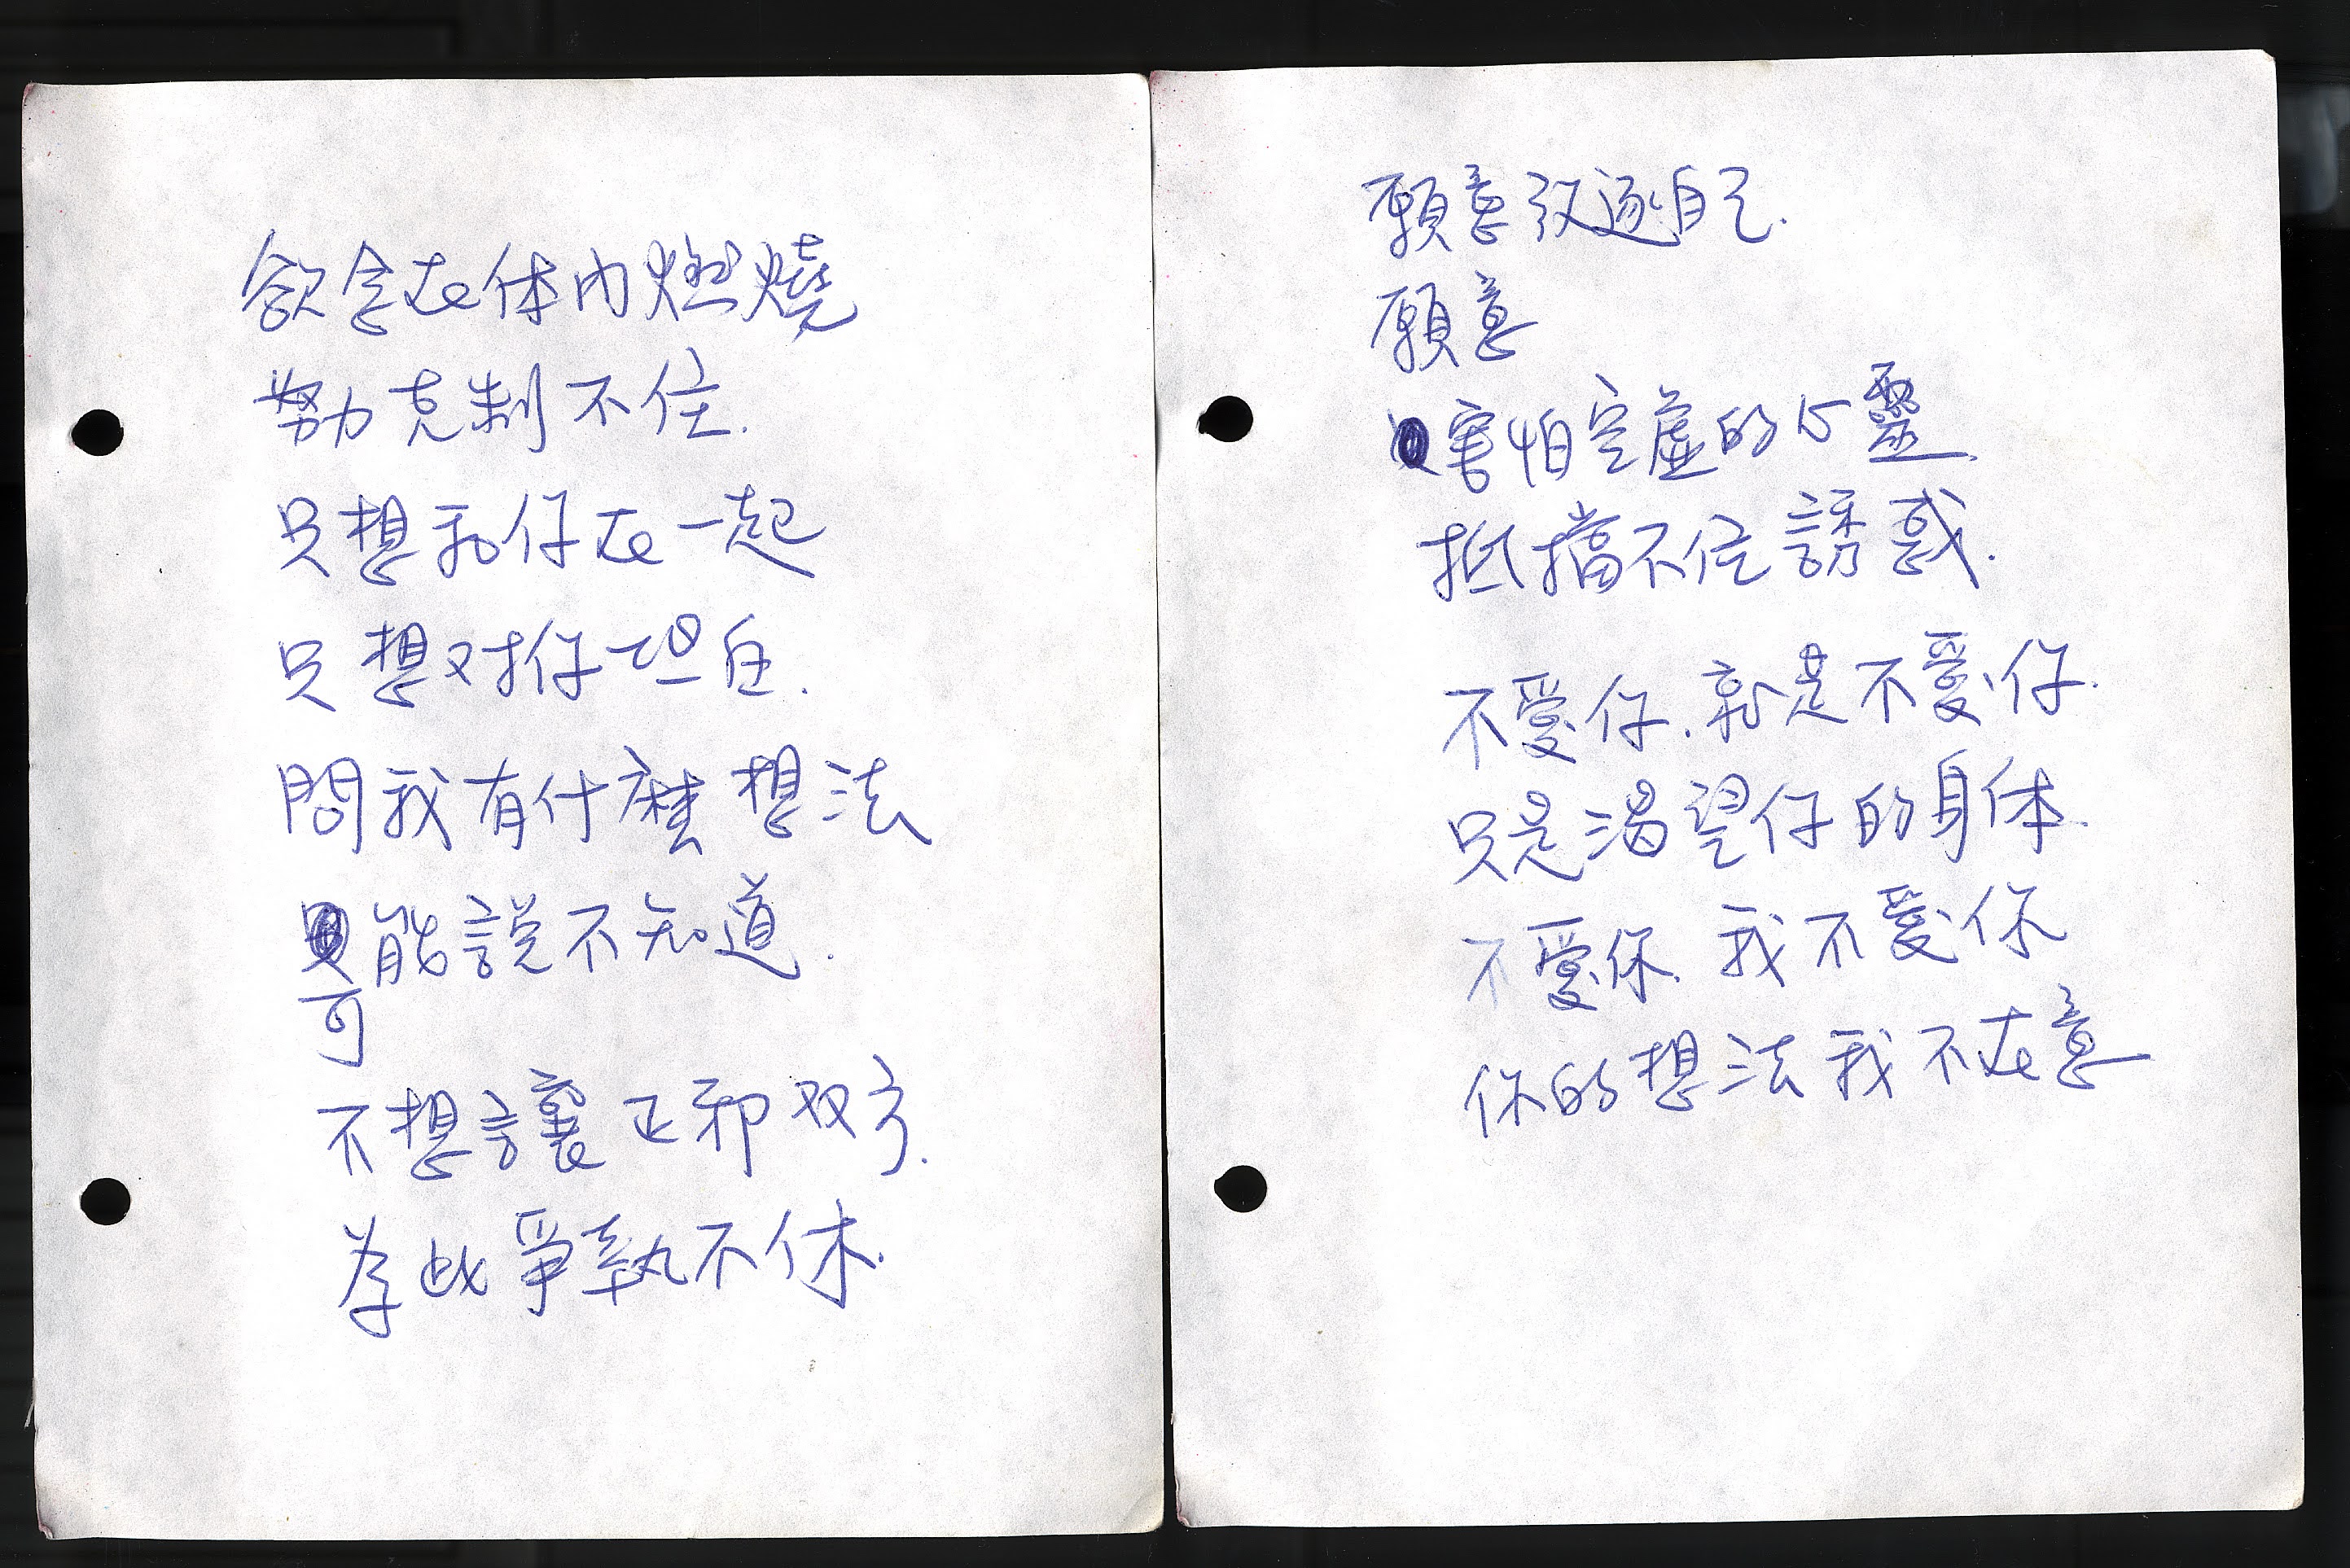 慾念在体内燃燒
努力克制不住.
只想和你在一起
只想对你坦白.
問我有什麽想法
能説不知道.
可
不想讓正邪双方.
為此爭執不休.
願意放逐自己.
願意
害怕空虛的心靈.
抵擋不住誘惑.
不愛你.就是不愛你.
只是渴望你的身体.
不愛你.我不愛你
你的想法我不在意